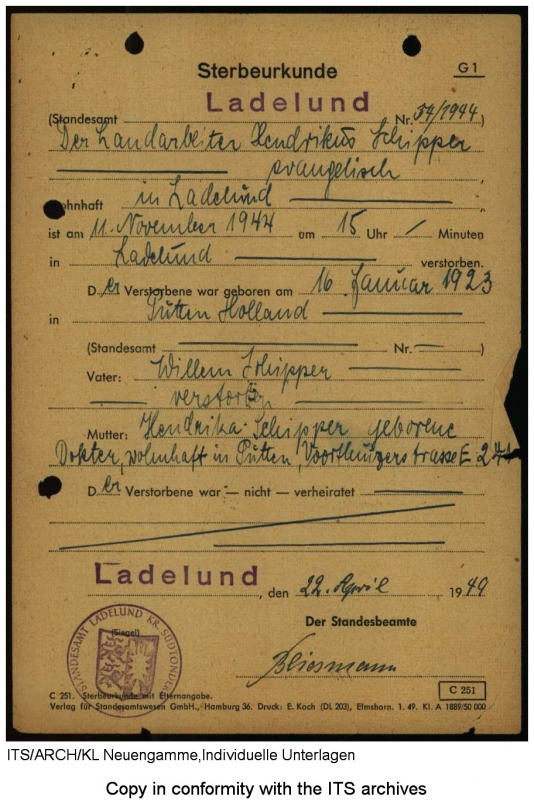 Sterbeurkunde
G 1
Ladelund
(Standesamt Nr. 54/1944)
Der Landarbeiter Hendrikus Schipper
evangelisch
wohnhaft in Ladelund
ist am 11. November 1944 um 15 Uhr / Minuten
in Ladelund verstorben.
Der Verstorbene war geboren am 16. Januar 1923
in Putten Holland
(Standesamt — Nr. — )
Vater: Willem Schipper
verstorben
Mutter: Hendrika Schipper geborene
Dokter, wohnhaft in Putten, Voorthuizerstrasse E
Der Verstorbene war — nicht — verheiratet
Ladelund, den 22. April 1949
Der Standesbeamte
(Siegel)
STANDESAMT LADELUND KR. SÜDTONDERN
C 251
C 251. Sterbeurkunde mit Elternangabe.
Verlag für Standesamtswesen GmbH., Hamburg 36. Druck: E. Koch (DL 203), Elmshorn. 1. 49. Kl. A 1889/50 000
ITS/ARCH/KL Neuengamme,Individuelle Unterlagen
Copy in conformity with the ITS archives